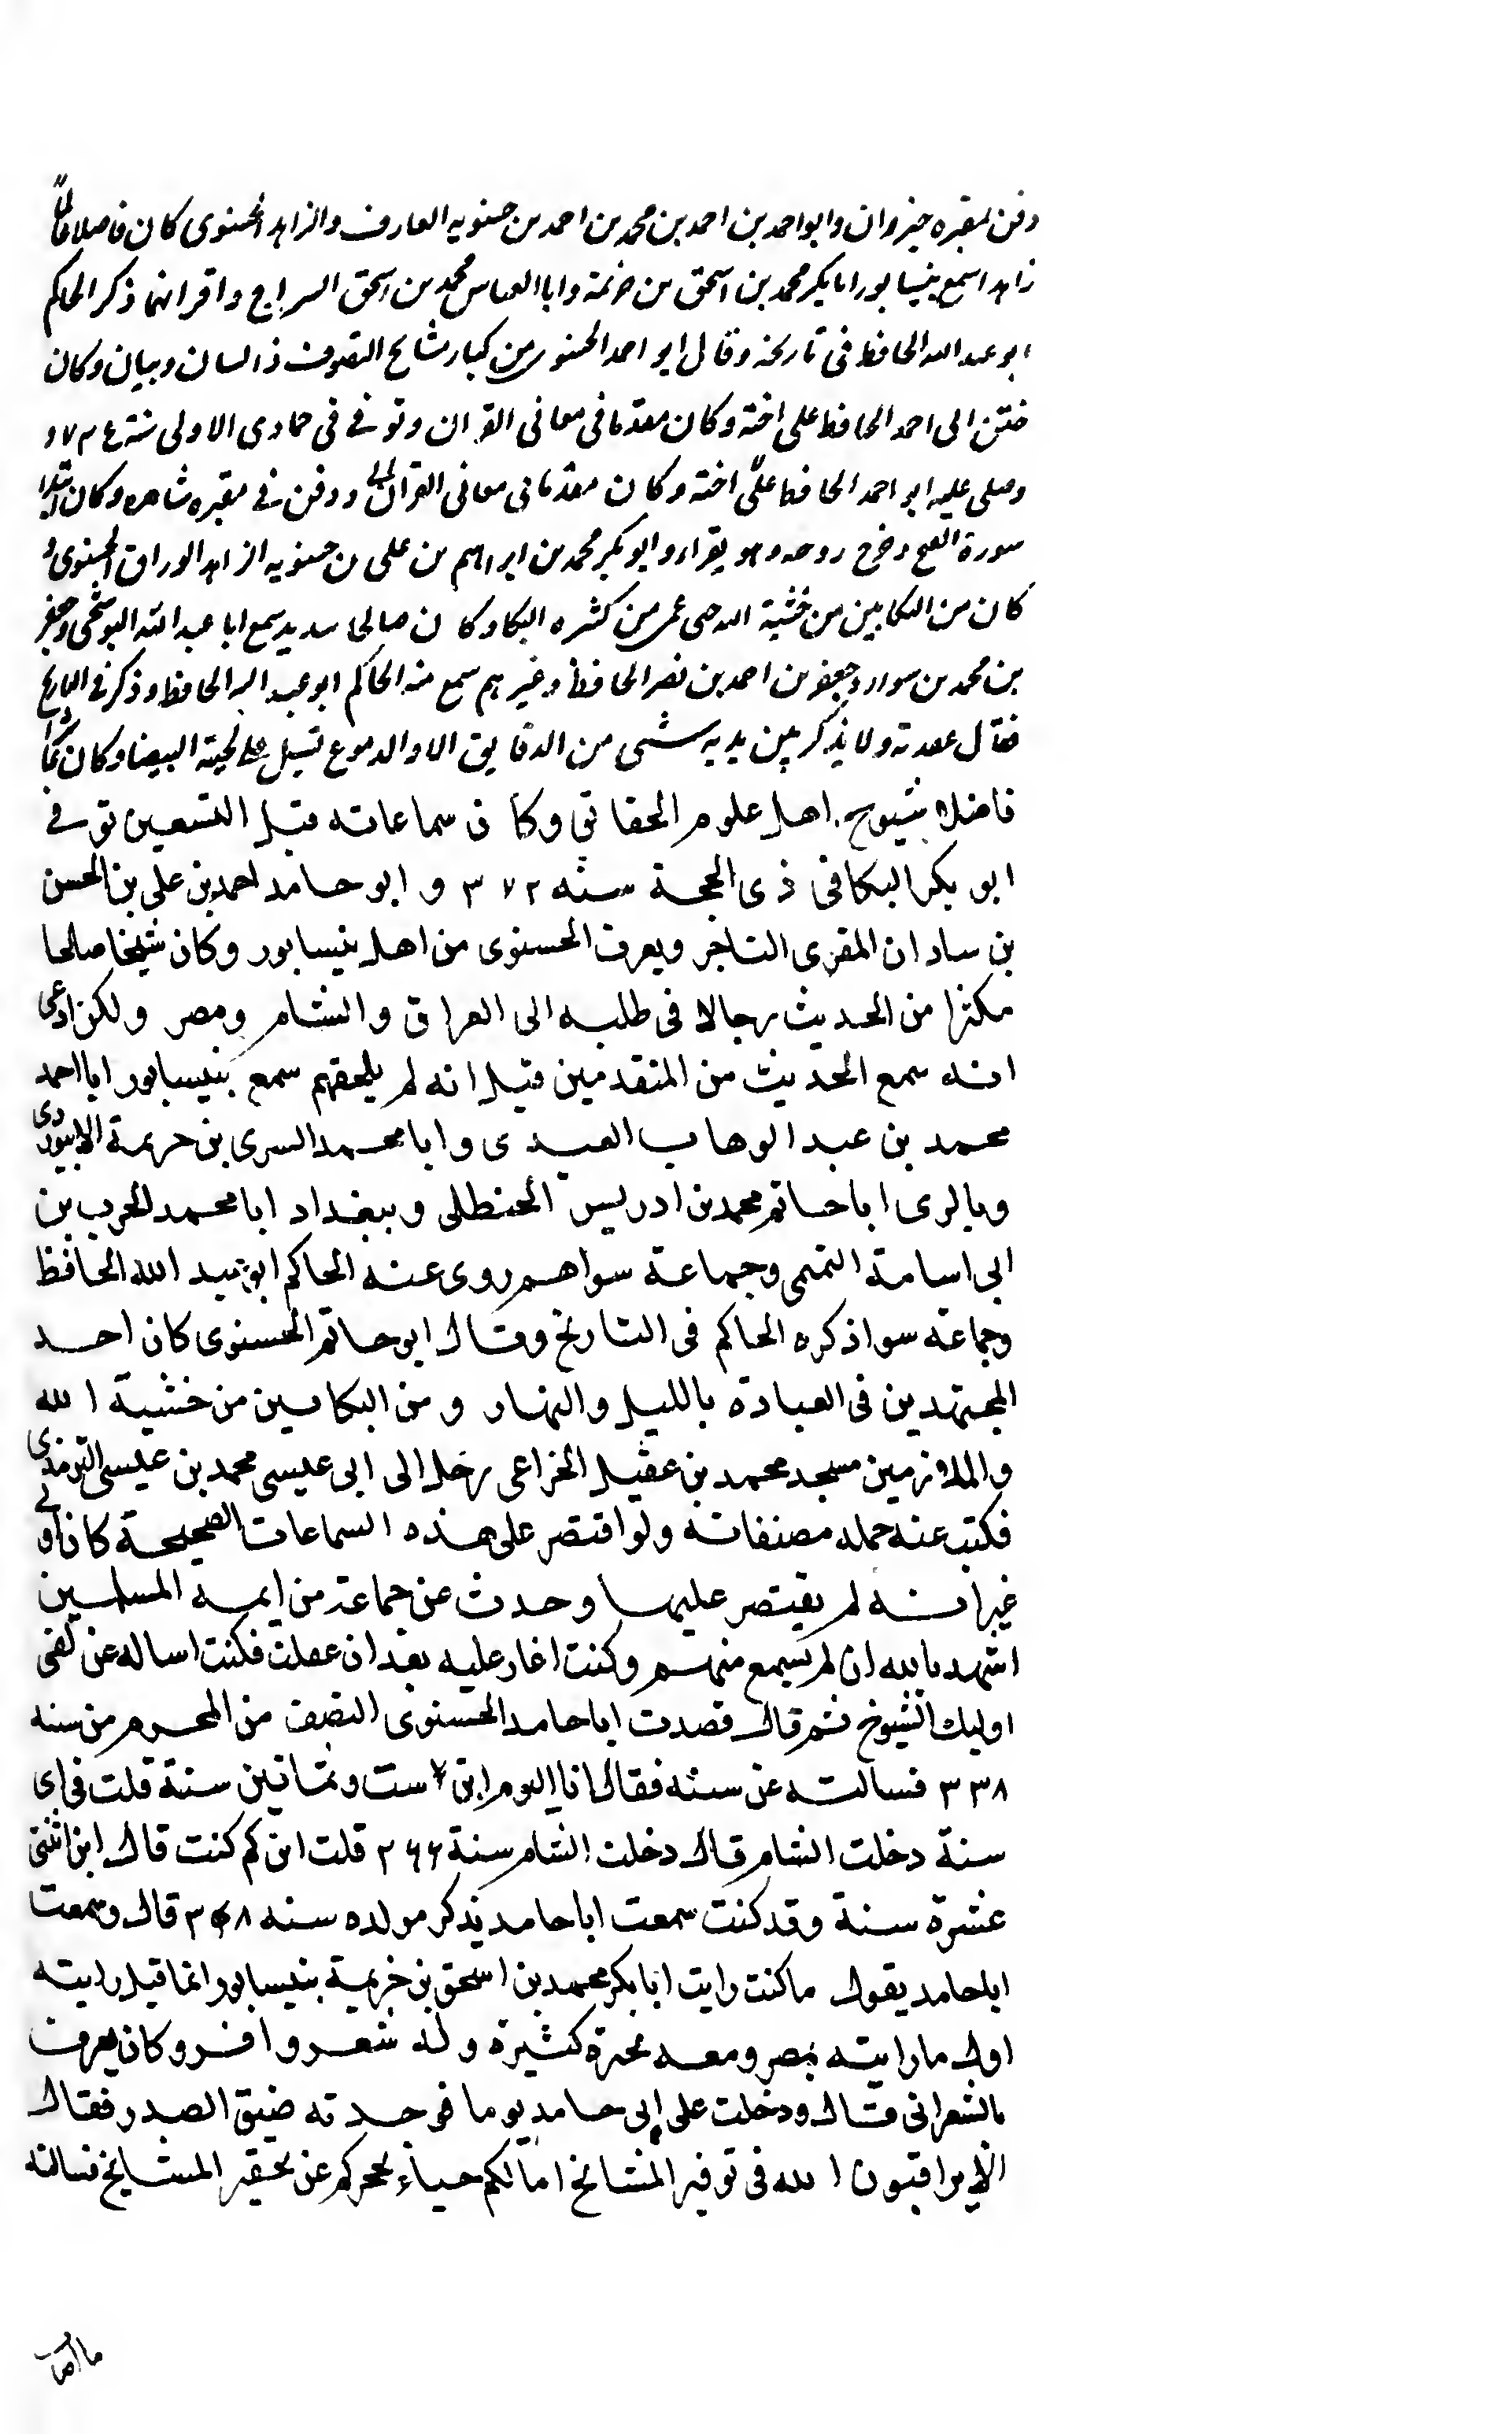 دفن بمقبره خيزوان وابو احمد بن احمد بن محمد بن احمد بن حسنويه العارف والزاهد الحسنوى كان فاضلا
زاهدا سمع بنيسابور ابا بكر محمد بن اسحق بن خزيمة وابا العباس محمد بن اسحق السراج واقرانهما ذكر الحاكم
ابو عبد الله الحافظ فى تاريخه وقال ابو احمد الحسنوى من كبار مشايخ التصوف ذا لسان وبيان وكان
ختن ابى احمد الحافظ على اخته وكان مقدما فى معانى القران وتوفى فى جمادى الاولى سنة ٣٧٤ و
وصلى عليه ابو احمد الحافظ على اخته وكان مقدما فى معانى القران ودفن فى مقبره شاهره وكان
سورة الفتح وخرج روحه وهو يقراء وابو بكر محمد بن ابراهيم بن على بن حسنويه الزاهد الوراق الحسنوى و
كان من البكايين من خشية الله حتى عمى من كثره البكا وكان صالحا سمع ابا عبد الله البوشنجى وجعفر
بن محمد بن سوار وجعفر بن احمد بن نصر الحافظ وغيرهم سمع منه الحاكم ابو عبد الله الحافظ وذكر فى التاريخ
فقال عهدته ولا يذكر بين يديه شى من الدقايق الا والدموع تسيل على لحيته البيضا وكان
فاضلا بشيوخ اهل علوم الحقايق وكان سماعاته قبل التسعين توفى
ابو بكر البكا فى ذى الحجة سنه ٣٧٢ و ابو حامد احمد بن على بن الحسن
بن سادان المقرى التاجر ويعرف الحسنوى من اهل بنيسابور وكان شيخا صالحا
مكثرا من الحديث رجالا فى طلبه الى العراق والشام ومصر ولكن ادعى
انه سمع الحديث من المتقدمين قيل انه لم يلحقهم سمع بنيسابور ابا احمد
محمد بن عبد الوهاب العبدى وابا محمد السرى بن خزيمة الابيوردى
وبالرى ابا حاتم محمد بن ادريس الحنطلى وببغداد ابا محمد الحرب بن
ابى اسامة التميمى وجماعة سواهم روى عنه الحاكم ابو عبيد الله الحافظ
وجماعة سوا ذكره الحاكم فى التاريخ وقال ابو حاتم الحسنوى كان احد
المجتهدين فى العبادة بالليل والنهار و من البكايين من خشية الله
والملازمين مسجد محمد بن عقيل الخزاعى رحل الى ابى عيسى محمد بن عيسى الترمذى
فكتب عنه جمله مصنفاته ولو اقتصر على هذه السماعات الصحيحة كان اولى
غير انه لم يقتصر عليها وحدث عن جماعة من ايمة المسلمين
اشهد بالله ان لم يسمع منهم وكنت اغار عليه بعد ان عقلت فكنت اساله عن لقى
اوليك الشيوخ ثم قال قصدت ابا حامد الحسنوى النصف من المحرم من سنه
٣٣٨ فسالته عن سنه فقال انا اليوم ابن ست وثمانين سنة قلت فى اى
سنة دخلت الشام قال دخلت الشام سنة ٢٦٦ قلت ابن كم كنت قال ابن اثنتى
عشرة سنة وقد كنت سمعت ابا حامد يذكر مولده سنه ٣٤٨ قال وسمعت
ابا حامد يقول ما كنت رايت ابا بكر محمد بن اسحق بن خزيمة بنيسابور انما قيل رايته
اول ما رايته بمصر ومعه محبرة كثيرة وله شعر وافر وكان يعرف
بالشعرانى قال ودخلت على ابى حامد يوما فوجدته ضيق الصدر فقال
الا يراقبون الله فى توقير المشايخ اما لكم حياء يحجركم عن تحقير المشايخ فسالته
ما اصابك